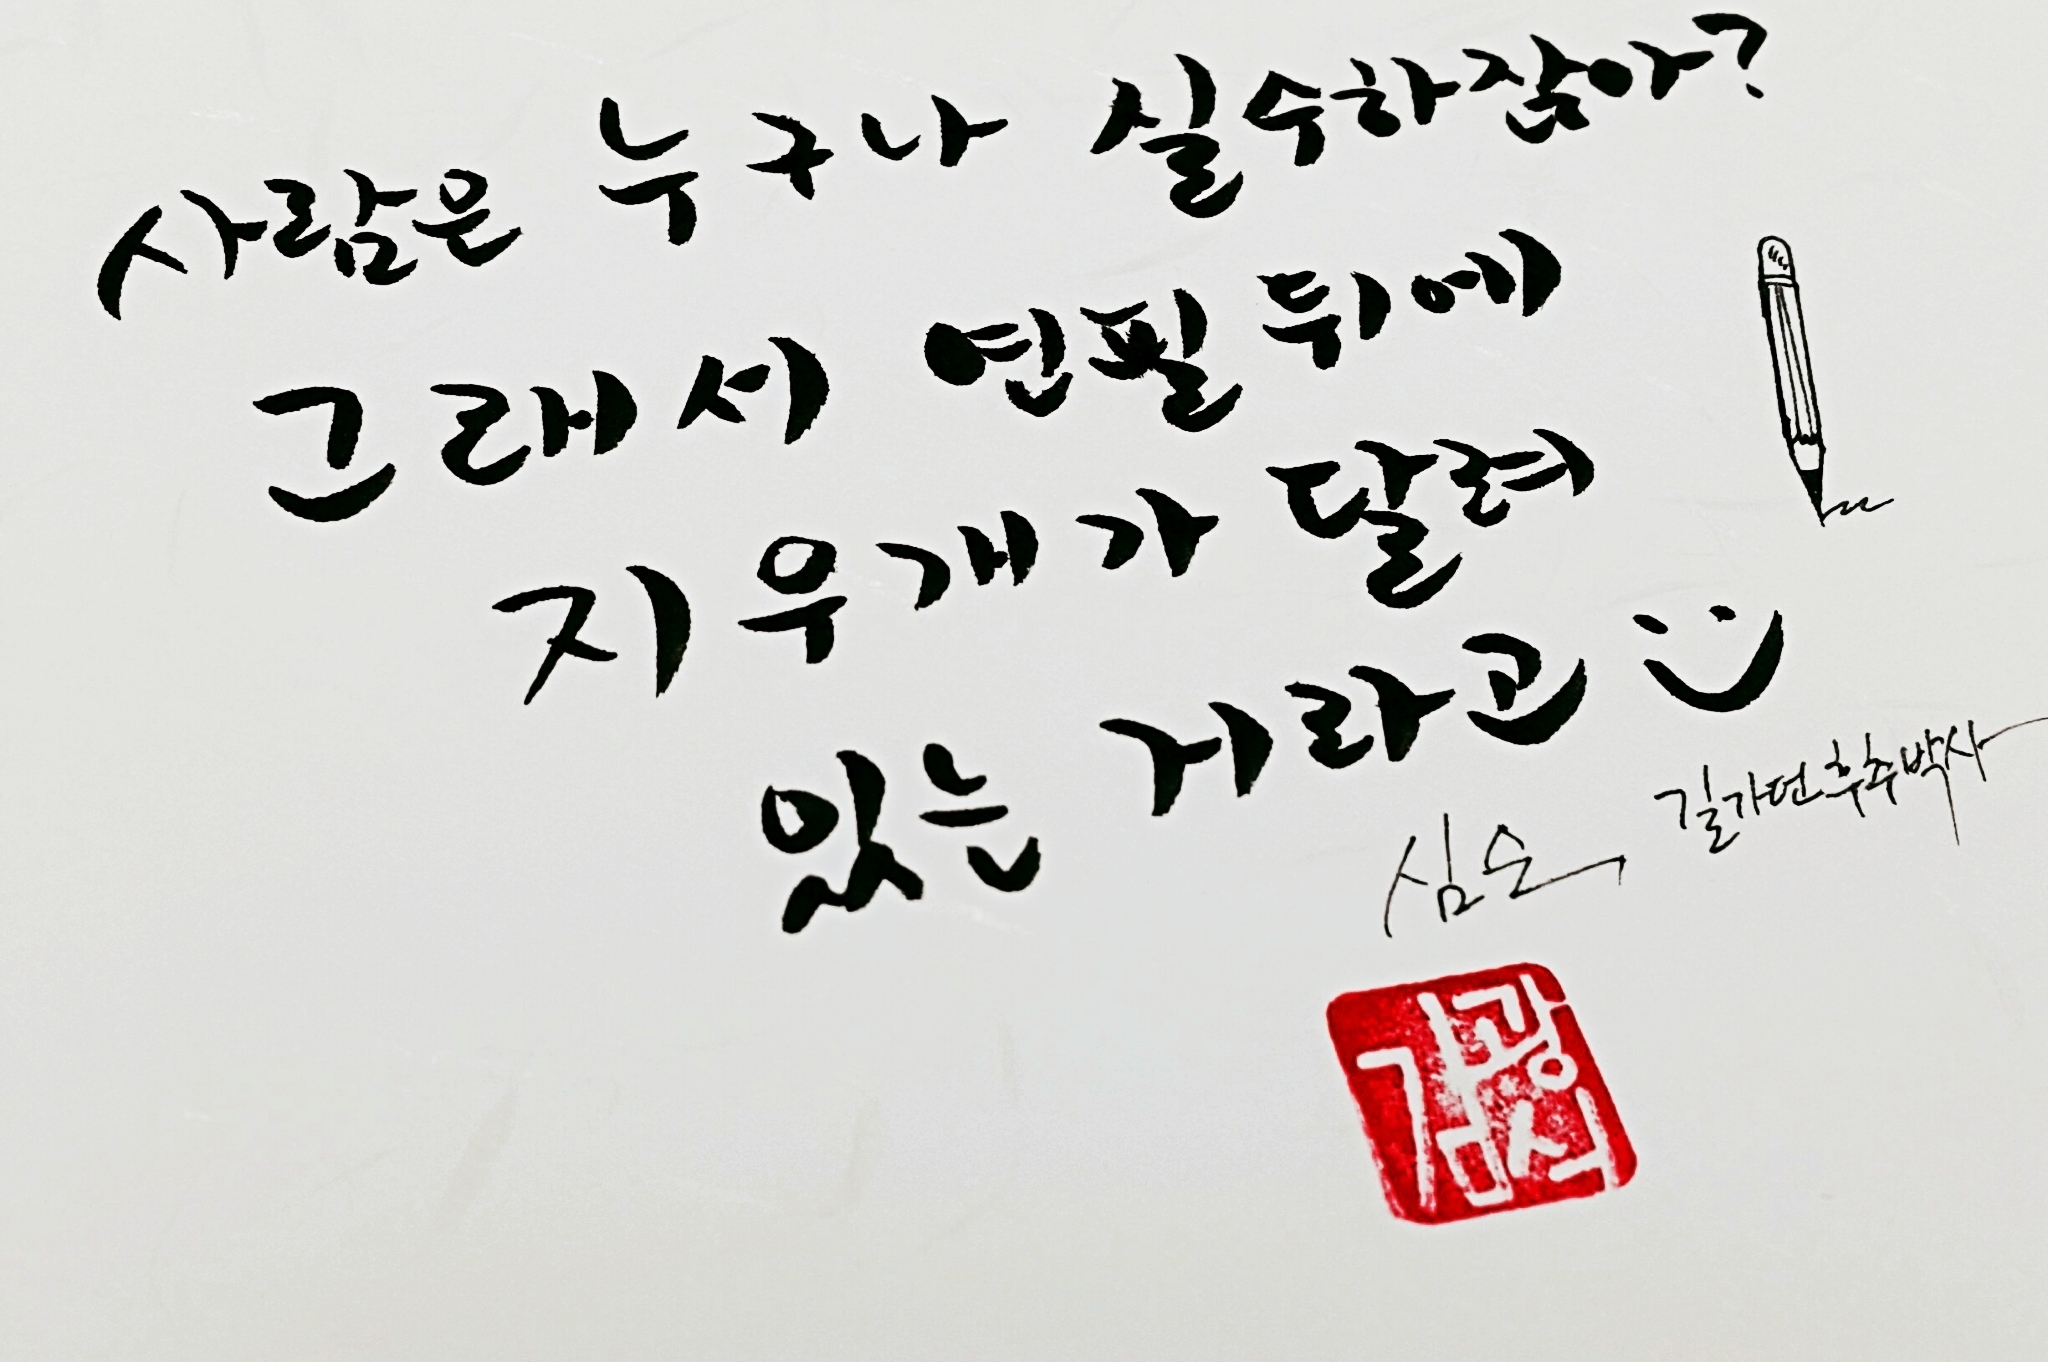 사람은 누구나 실수하잖아?
그래서 연필 뒤에
지우개가 달려
있는 거라고
길가던후추박사
심순
김광석